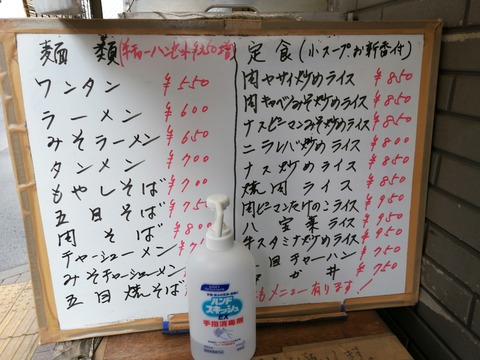 麺類(半チャーハンセット¥250増)
ワンタン ¥550
ラーメン ¥600
みそラーメン ¥650
タンメン ¥700
もやしそば ¥700
五目そば ¥750
肉そば ¥800
チャーシューメン
みそチャーシューメン
五目焼そば
定食(小スープお新香付)
肉ヤサイ炒めライス ¥850
肉キャベツみそ炒めライス ¥850
ナスピーマンみそ炒めライス ¥850
ニラレバ炒めライス ¥850
ナス炒めライス ¥850
焼肉ライス ¥850
肉ピーマンたけのこライス ¥950
八宝菜ライス ¥950
牛スタミナ炒めライス ¥950
目チャーハン ¥850
丼 ¥750
もメニュー有ります!
ハンド
スキッシュ
EX
手指消毒剤